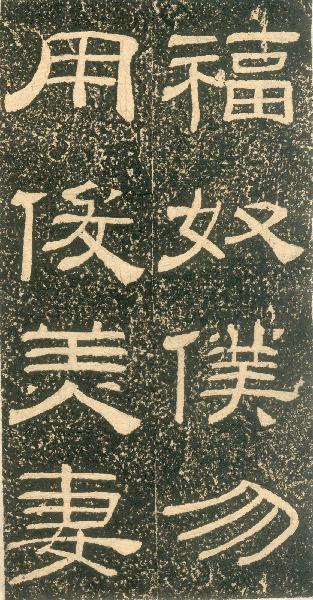 福奴僕勿
用俊美妻